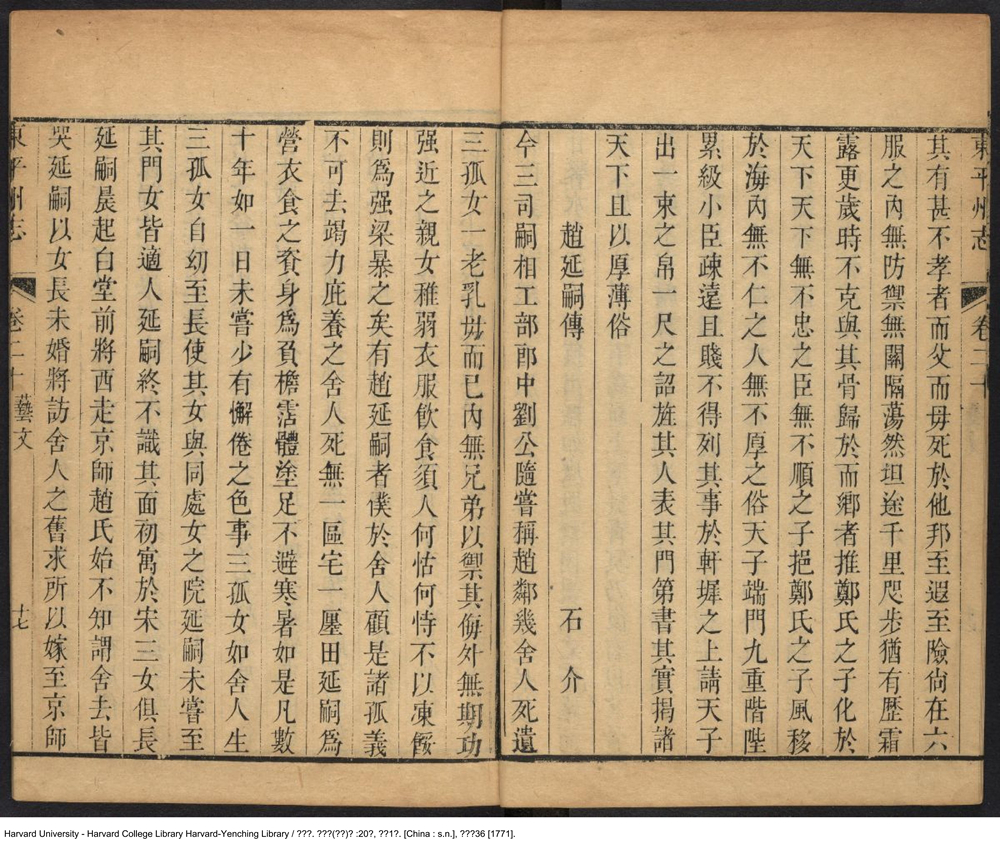 東平州志 卷二十
其有甚不孝者而父而毋死於他邦至遐至險尙在六
服之內無防禦無關隔蕩然坦途千里咫步猶有歷霜
露更歲時不克與其骨歸於而鄉者推鄭氏之子化於
天下天下無不忠之臣無不順之子挹鄭氏之子風移
於海內無不仁之人無不厚之俗天子端門九重階陛
累級小臣疎遠且賤不得列其事於軒墀之上請天子
出一束之帛一尺之詔旌其人表其門第書其實揭諸
天下且以厚薄俗
趙延嗣傳 石介
今三司嗣相工部郎中劉公隨嘗稱趙鄰幾舍人死遺
三孤女一老乳毋而已內無兄弟以禦其侮外無期功
强近之親女稚弱衣服飮食須人何怙何恃不以凍餒
則爲强梁暴之矣有趙延嗣者僕於舍人顧是諸孤義
不可去竭力庇養之舍人死無一區宅一廛田延嗣爲
營衣食之資身爲負檐霑體塗足不避寒暑如是凡數
十年如一日未嘗少有懈倦之色事三孤女如舍人生
三孤女自幼至長使其女與同處女之院延嗣未嘗至
其門女皆適人延嗣終不識其面初寓於宋三女俱長
延嗣晨起白堂前將西走京師趙氏始不知謂舍去皆
哭延嗣以女長未婚將訪舍人之舊求所以嫁至京師
東平州志 卷二十 藝文 十七
Harvard University - Harvard College Library Harvard-Yenching Library / ???. ???(??)? :20?, ??1?. [China : s.n.], ???36 [1771].